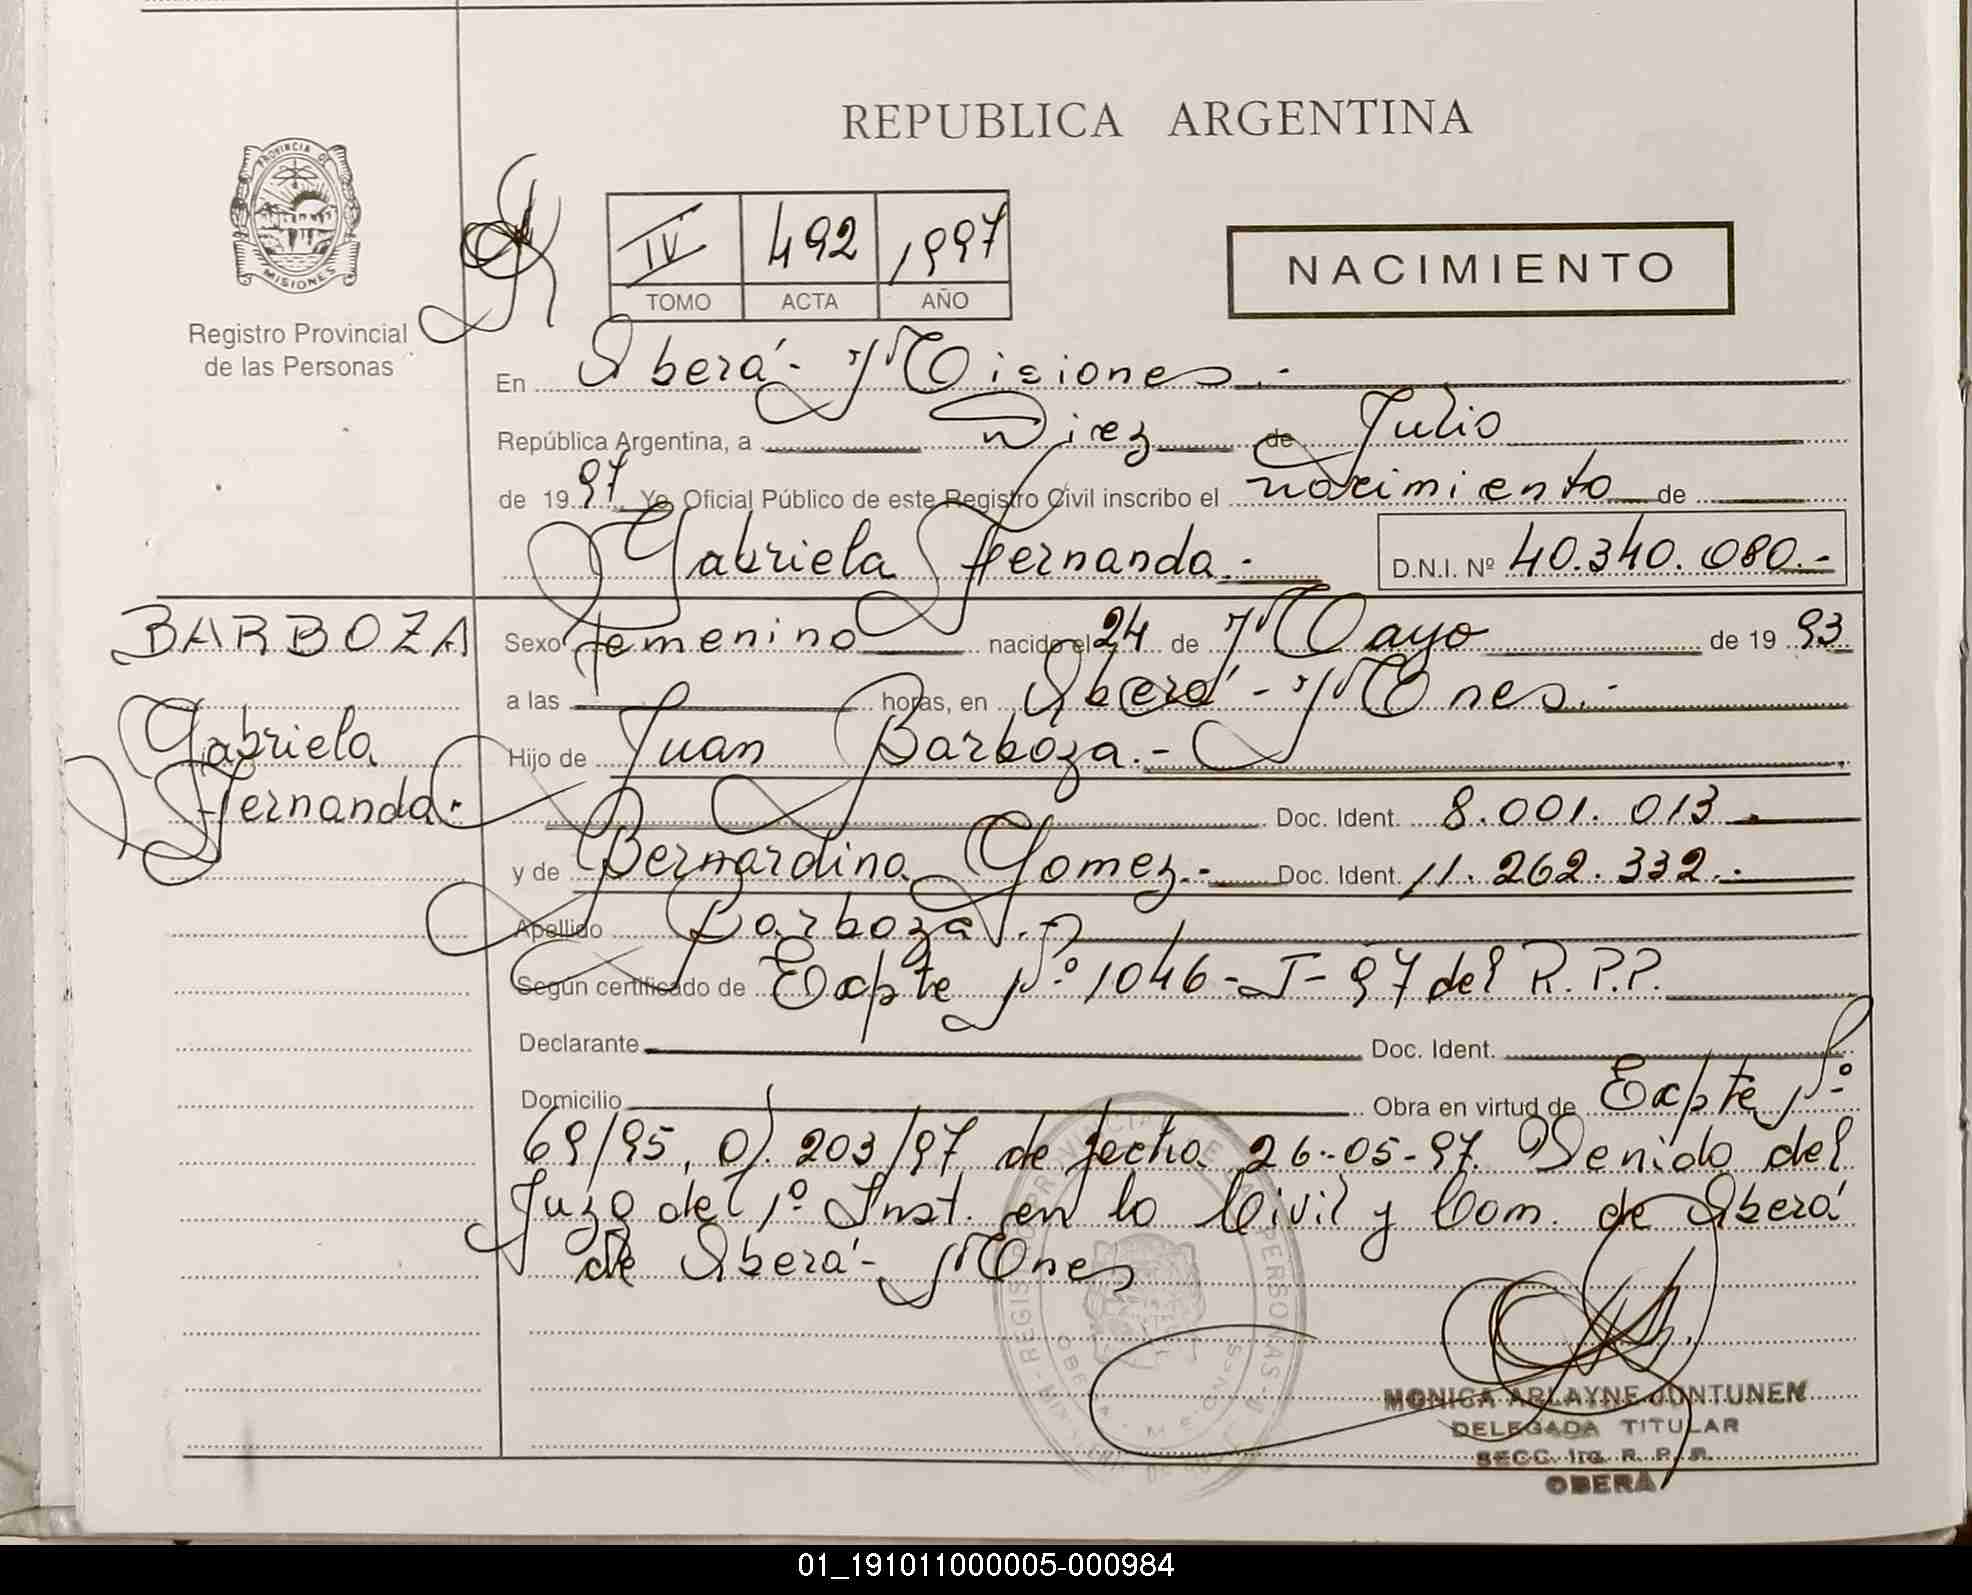 REPUBLICA ARGENTINA
PROVINCIA DE
MISIONES
Registro Provincial
de las Personas
IV 492 1997
TOMO ACTA AÑO
NACIMIENTO
En Oberá - Misiones.-
República Argentina, a Diez de Julio
de 1997 Yo, Oficial Público de este Registro Civil inscribo el nacimiento de
Gabriela Fernanda.- D.N.I. Nº 40.340.080.-
BARBOZA
Gabriela
Fernanda.-
Sexo femenino nacido el 24 de Mayo de 1993
a las horas, en Oberá - Mnes.-
Hijo de Juan Barboza.-
Doc. Ident. 8.001.013
y de Bernardina Gomez.- Doc. Ident. 11.262.332.-
Apellido Barboza.-
Según certificado de Expte Nº 1046-J-97 del R.P.P.
Declarante Doc. Ident.
Domicilio Obra en virtud de Expte Nº
69/95, O/. 203/97 de fecha 26-05-97. Venido del
Juzg del 1º Inst. en lo Civil y Com. de Oberá
de Oberá - Mnes
MONICA ARLAYNE JUNTUNEN
DELEGADA TITULAR
SECC. 1ra. R. P. P.
OBERÁ
01_191011000005-000984